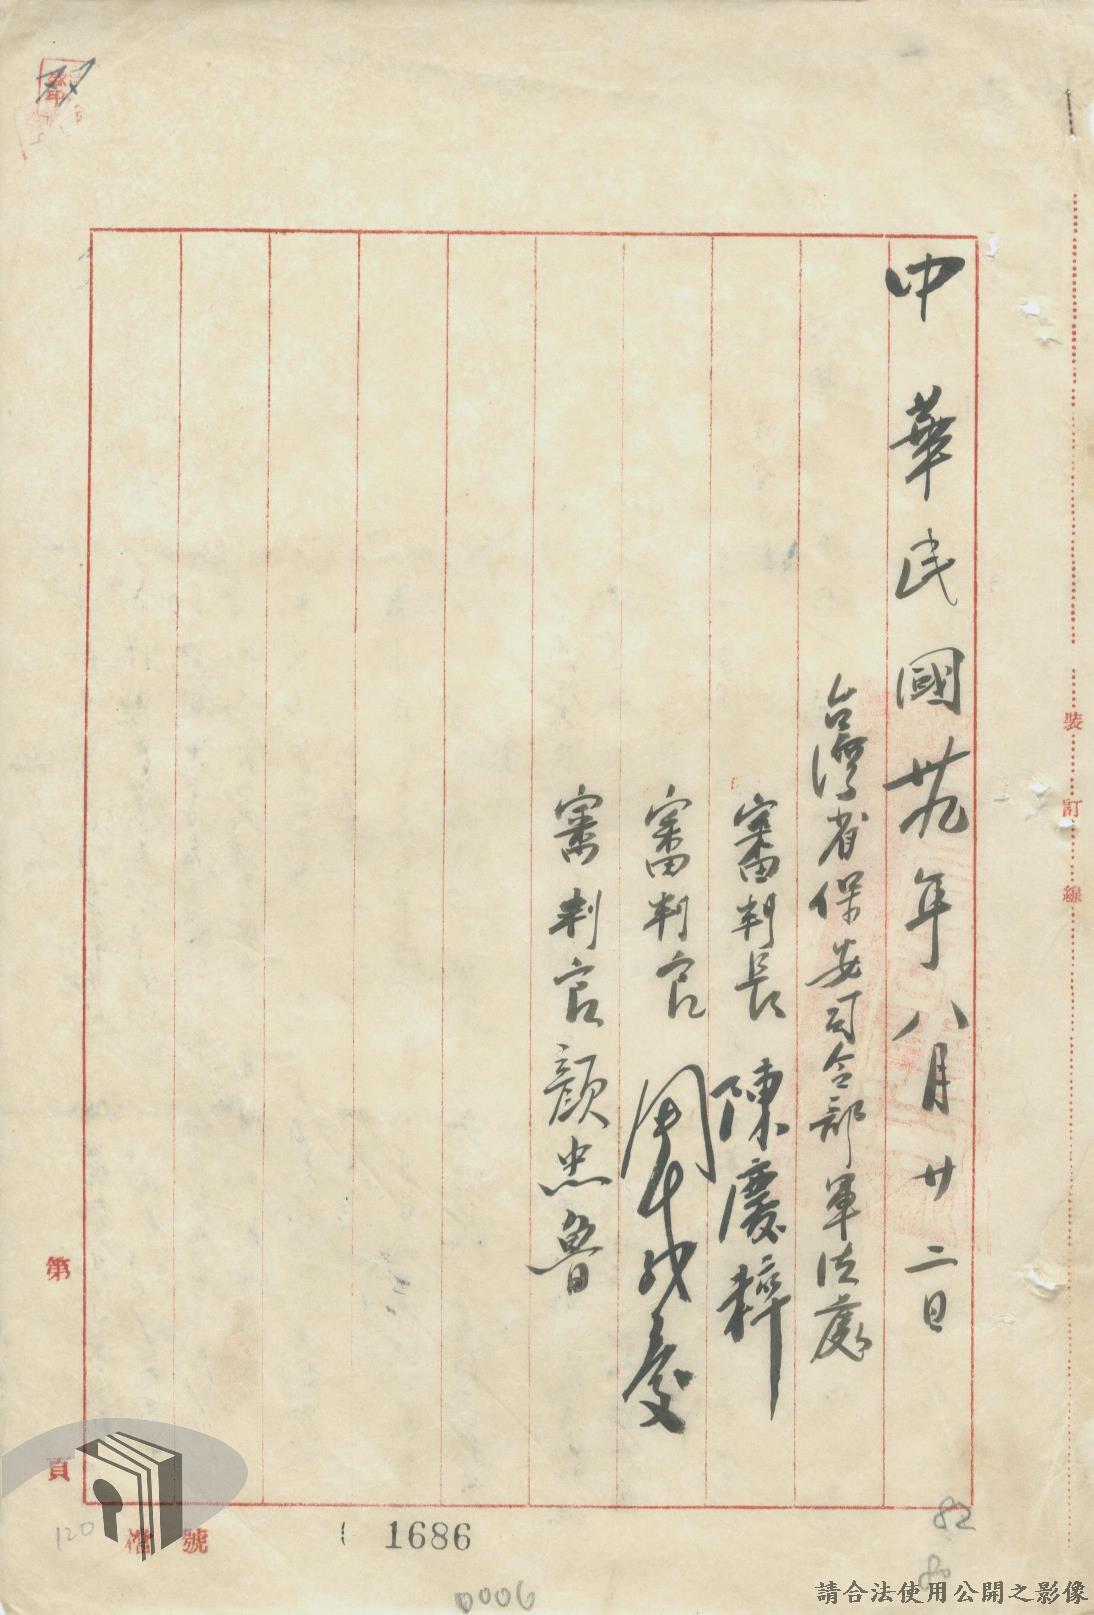 中華民國卅九年八月廿二日
台灣省保安司令部軍法處
審判長 陳慶粹
審判官 周咸慶
審判官 顏忠魯
裝
訂
線
第
頁
檔 號
1686
0006
120
82
80
請合法使用公開之影像